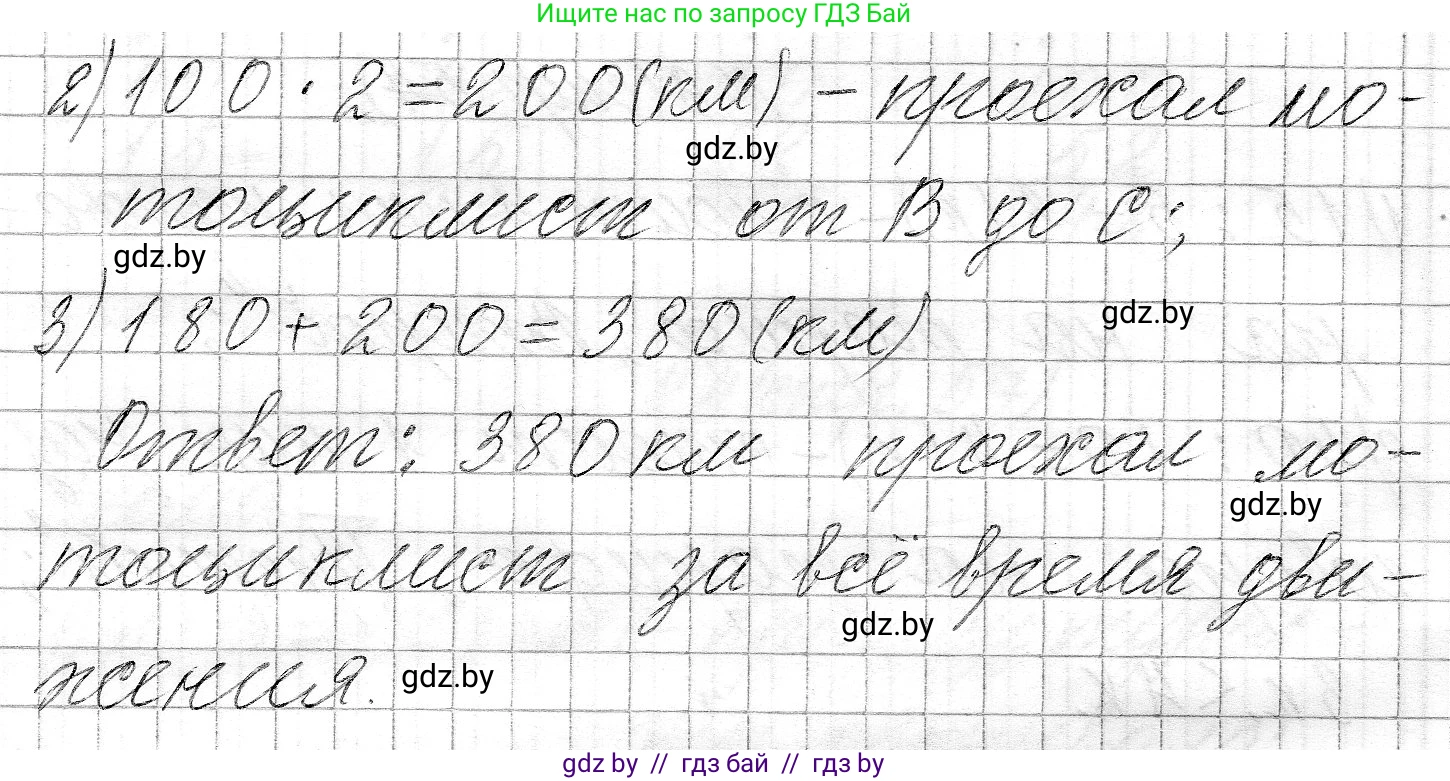 Ищите нас по запросу ГДЗ Бай
2) 100 · 2 = 200 (км) - проехал мо-
gdz.by
тоциклист от В до С;
gdz.by
3) 180 + 200 = 380 (км)
gdz.by
Ответ: 380 км проехал мо-
gdz.by
тоциклист за всё время дви-
gdz.by
жения.
gdz.by
gdz by // гдз бай // гдз by